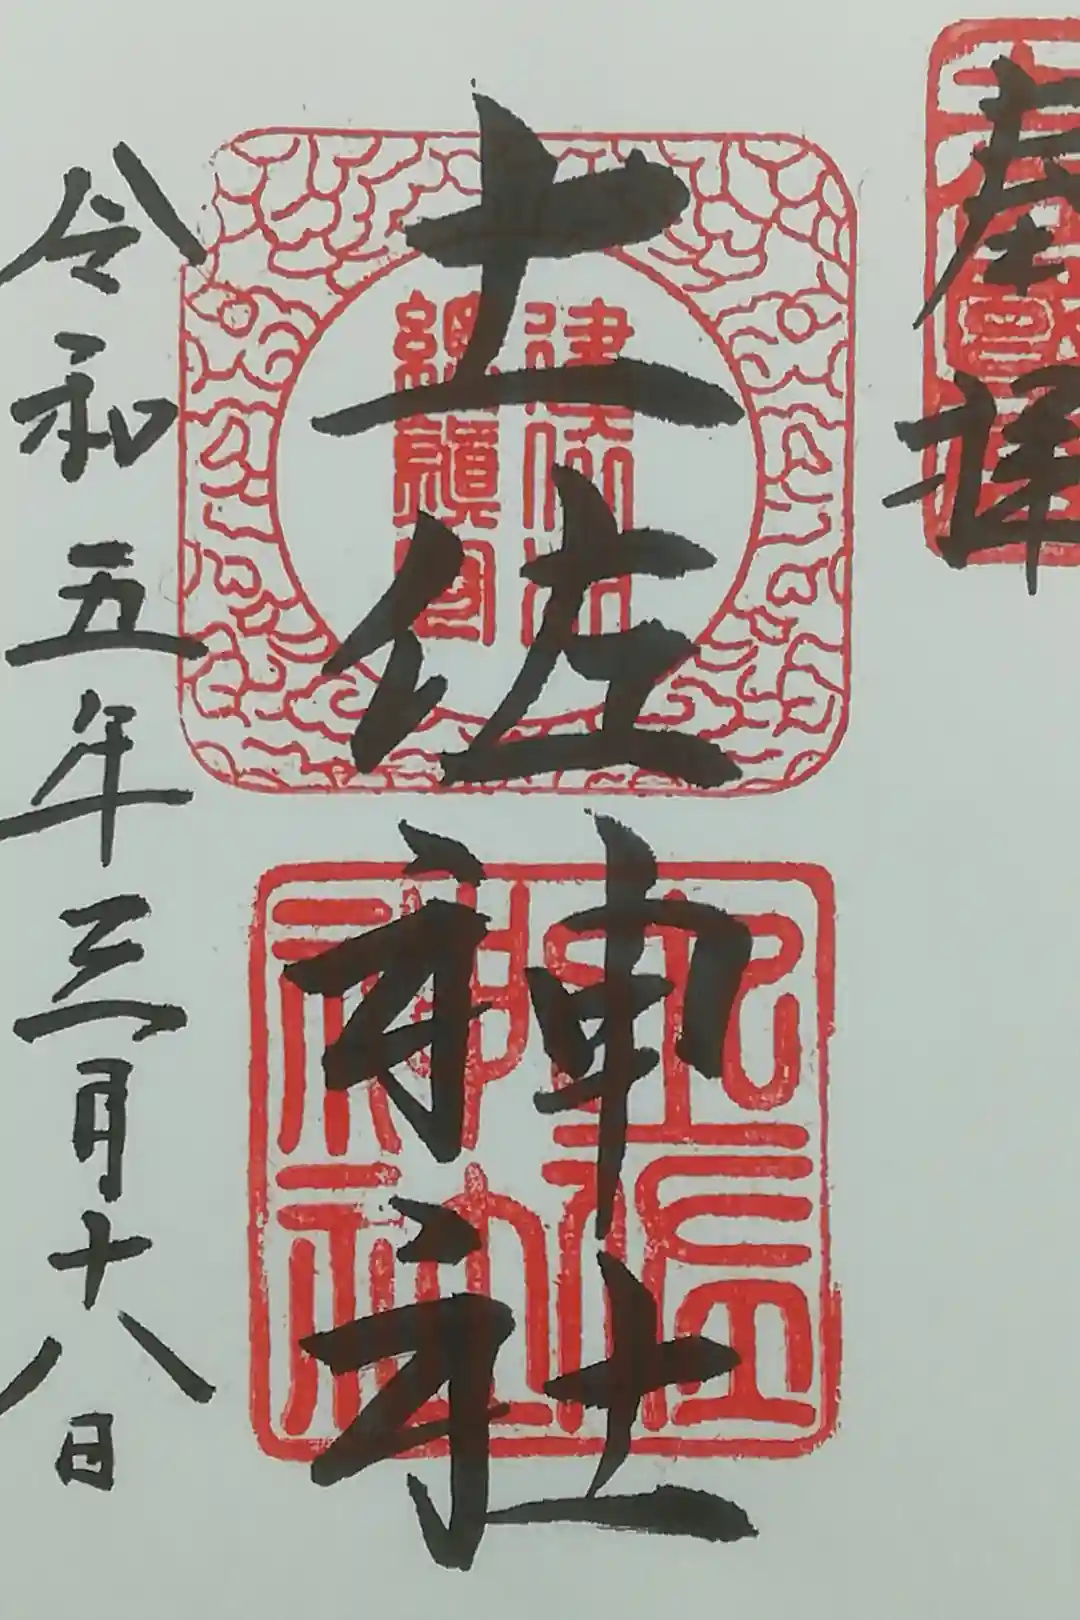 奉拝
土佐神社
令和五年三月十八日
建依別
総鎮守
土佐神社